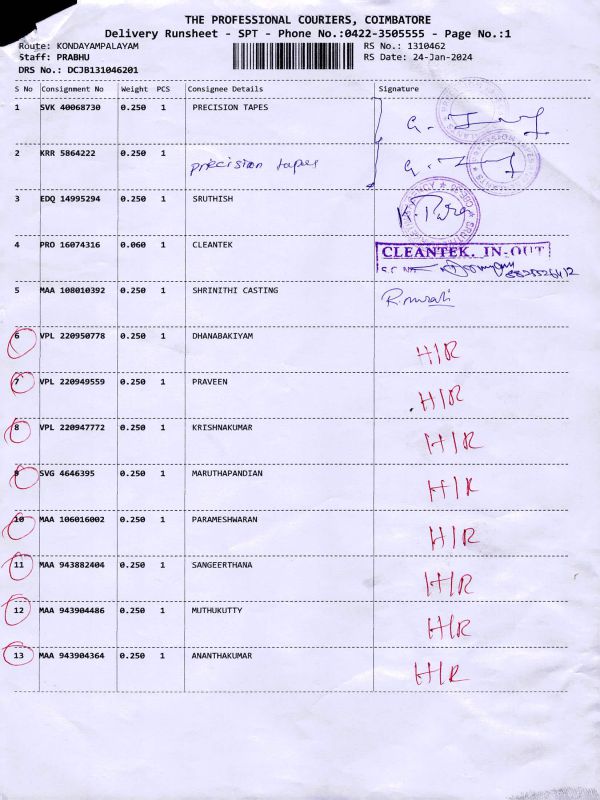 THE PROFESSIONAL COURIERS, COIMBATORE
Delivery Runsheet - SPT - Phone No.:0422-3505555 - Page No.:1
Route: KONDAYAMPALAYAM RS No.: 1310462
Staff: PRABHU RS Date: 24-Jan-2024
DRS No.: DCJB131046201
S No Consignment No Weight PCS Consignee Details Signature
1 SVK 40068730 0.250 1 PRECISION TAPES
2 KRR 5864222 0.250 1 precision tapes
3 EDQ 14995294 0.250 1 SRUTHISH
4 PRO 16074316 0.060 1 CLEANTEK CLEANTEK. IN-OUT
5 MAA 108010392 0.250 1 SHRINITHI CASTING R.murali
6 VPL 220950778 0.250 1 DHANABAKIYAM H/R
7 VPL 220949559 0.250 1 PRAVEEN H/R
8 VPL 220947772 0.250 1 KRISHNAKUMAR H/R
9 SVG 4646395 0.250 1 MARUTHAPANDIAN H/R
10 MAA 106016002 0.250 1 PARAMESHWARAN H/R
11 MAA 943882404 0.250 1 SANGEERTHANA H/R
12 MAA 943904486 0.250 1 MUTHUKUTTY H/R
13 MAA 943904364 0.250 1 ANANTHAKUMAR H/R